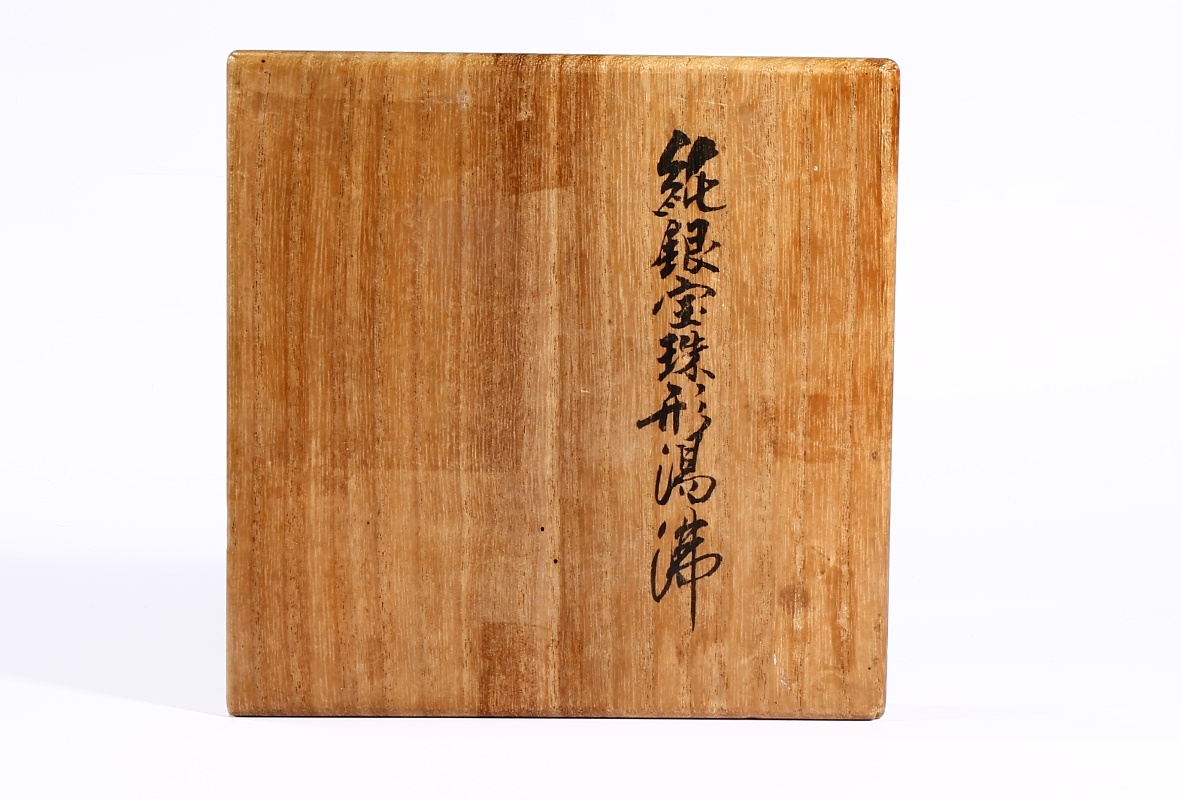 純銀宝珠形湯沸